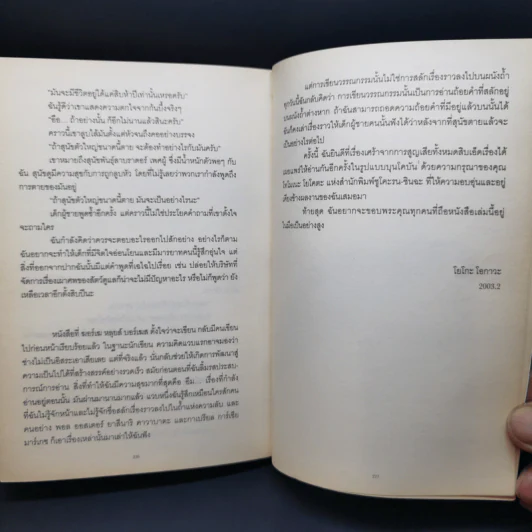 "มันจะมีชีวิตอยู่ได้แค่สิบห้าปีเท่านั้นเหรอครับ"
ฉันรู้ดีว่าเขาแสดงความตกใจจากก้นบึ้งจริงๆ
"อือ... ถ้าอย่างนั้น ก็อีกไม่นานแล้วสินะครับ"
คราวนี้เขาลูบไล้มันตั้งแต่หัวจนถึงคออย่างบรรจง
"ถ้าสุนัขตัวใหญ่ขนาดนี้ตาย จะต้องทำอย่างไรกับมันครับ"
เขาหมายถึงสุนัขพันธุ์ลาบราดอร์ เพศผู้ ซึ่งมีน้ำหนักตัวพอๆ กับ
ฉัน สุนัขภูมิความสุขกับการถูกลูบหัว โดยที่ไม่รู้เลยว่าพวกเรากำลังพูดถึง
การตายของมันอยู่
"ถ้าสุนัขตัวใหญ่ขนาดนี้ตาย มันจะเป็นอย่างไรนะ"
เด็กผู้ชายพูดซ้ำอีกครั้ง แต่คราวนี้ไม่ใช่ประโยคคำถามที่เขาตั้งใจ
จะถามใคร
ฉันกำลังคิดว่าควรจะตอบอะไรออกไปสักอย่าง อย่างไรก็ตาม
ฉันอยากจะทำให้เด็กที่มีจิตใจอ่อนโยนและมีมารยาทคนนี้รู้สึกอุ่นใจ แต่
สิ่งที่ออกจากปากฉันนั้นมีแต่คำพูดที่เฉไฉไปเรื่อย เช่น ปล่อยให้บริษัทที่
จัดการเรื่องเผาศพของสัตว์ดูแลก็น่าจะไม่มีปัญหาอะไร หรือไม่ก็พูดว่า ยัง
เหลือเวลาอีกตั้งสิบปีนะ
หนังสือที่ ฆอร์เฆ หลุยส์ บอร์เฆส ตั้งใจว่าจะเขียน กลับมีคนเขียน
ไปก่อนหน้าเรียบร้อยแล้ว ในฐานะนักเขียน ความคิดแวบแรกอาจมองว่า
ช่างไม่เป็นอิสระเอาเสียเลย แต่ที่จริงแล้ว นั่นกลับช่วยให้เกิดการพัฒนาสู่
ความเป็นไปได้ที่สร้างสรรค์อย่างรวดเร็ว สมัยก่อนตอนที่ฉันลิ้มรสประสบ-
การณ์การอ่าน สิ่งที่ทำให้ฉันมีความสุขมากที่สุดคือ อืม... เรื่องที่กำลัง
อ่านอยู่ตอนนั้น มันผ่านมานานมากแล้ว แวบหนึ่งฉันรู้สึกเหมือนใครสักคน
ที่ฉันไม่รู้จักหน้าและไม่รู้จักชื่อสลักเรื่องราวลงไปในถ้ำแห่งความลับ และ
คนอย่าง พอล ออสเตอร์ ยาสึนาริ คาวาบาตะ และกาเบรียล การ์เซีย
มาร์เกซ ก็เอาเรื่องเหล่านั้นมาเล่าให้ฉันฟัง
แต่การเขียนวรรณกรรมนั้นไม่ใช่การสลักเรื่องราวลงไปบนผนังถ้ำ
ทุกวันนี้ฉันกลับคิดว่า การเขียนวรรณกรรมนั้นเป็นการอ่านถ้อยคำที่สลักอยู่
บนผนังถ้ำต่างหาก ถ้าฉันสามารถถอดความถ้อยคำที่มีอยู่แล้วบนนั้นได้
ฉันก็คงเล่าเรื่องราวให้เด็กผู้ชายคนนั้นฟังได้ว่าหลังจากที่สุนัขตายแล้วจะ
เป็นอย่างไรต่อไป
ครั้งนี้ ฉันยินดีที่เรื่องเศร้าจากการสูญเสียทั้งหมดสิบเอ็ดเรื่องได้
เผยแพร่ให้อ่านกันอีกครั้งในรูปแบบบุนโคบัน ด้วยความกรุณาของคุณ
โทโมเนะ โยโคตะ แห่งสำนักพิมพ์ชูโคะรน-ชินฉะ ที่ให้ความอบอุ่นและอยู่
เคียงข้างผลงานของฉันเสมอมา
ท้ายสุด ฉันอยากจะขอบพระคุณทุกคนที่ถือหนังสือเล่มนี้อยู่
ในมือเป็นอย่างสูง
โยโกะ โอกาวะ
2003.2